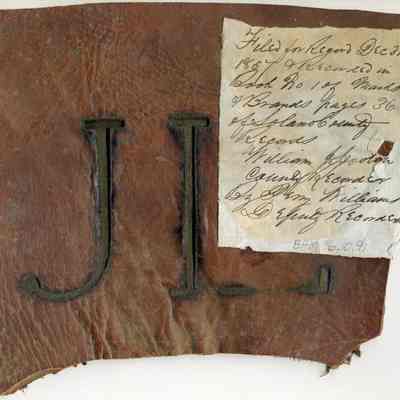 JL
Filed for Record Dec
1857 & Recorded in
Book No 1 of Marks
& Brands pages 36
of Solano County
Records
William
County Recorder
By Williams
Deputy Recorder